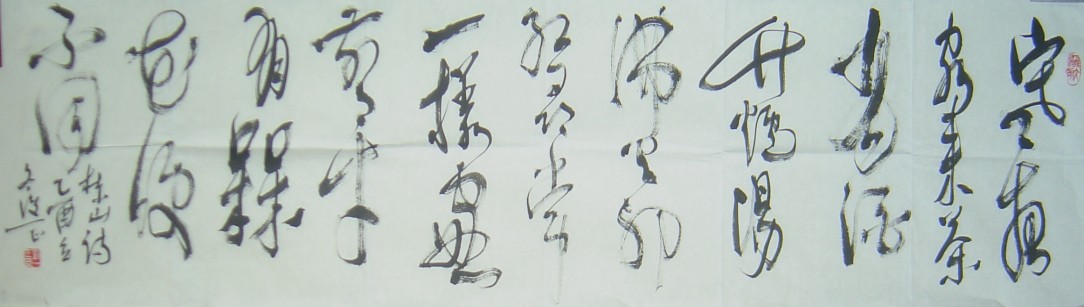 寒夜
客来茶
当酒
竹炉湯
沸火初
红寻常
一樣窗
前月才
有槑
花便
不同
杜山诗
乙酉